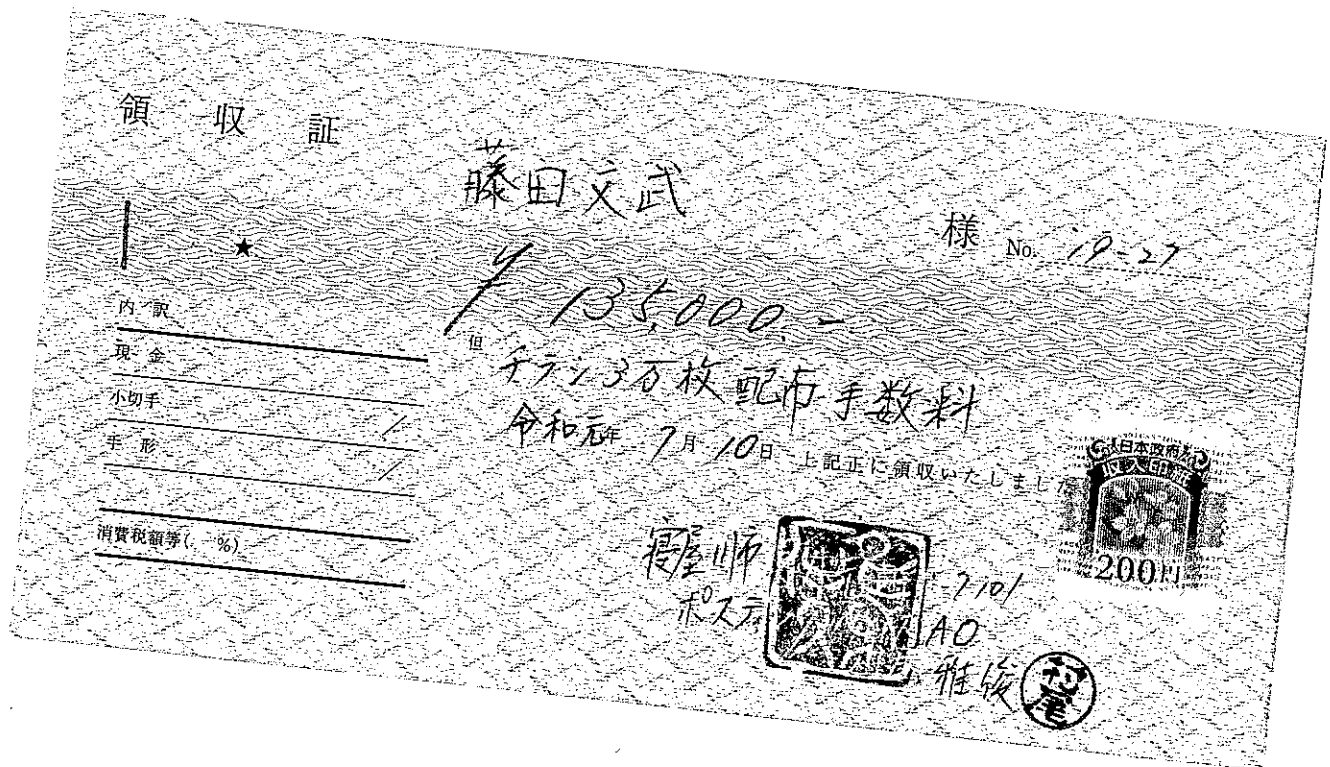 領収証
藤田文武 様 No. 19-27
★
¥135,000.-
但 チラシ3万枚配布手数料
令和元年 7月10日 上記正に領収いたしました
内訳
現金
小切手
手形
消費税額等( %)
日本政府
収入印紙
200円
寝屋川市 -7101
ポステ AO
雅俊 村尾